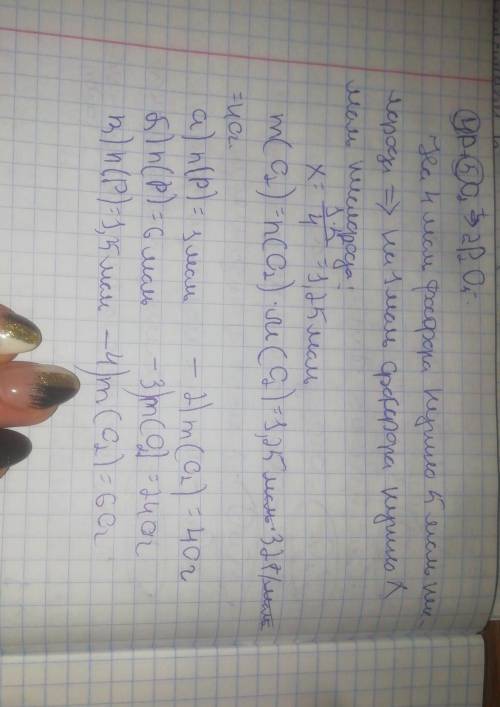 4P + 5O₂ → 2P₂O₅
На 4 моль фосфора нужно 5 моль кис-
лорода => на 1 моль фосфора нужно X
моль кислорода:
X = 1·5/4 = 1,25 моль
m(O₂) = n(O₂) · M(O₂) = 1,25 моль · 32 г/моль
= 40г
а) n(P) = 1 моль – 2) m(O₂) = 40г
б) n(P) = 6 моль – 3) m(O₂) = 240г
в) n(P) = 1,5 моль – 4) m(O₂) = 60г